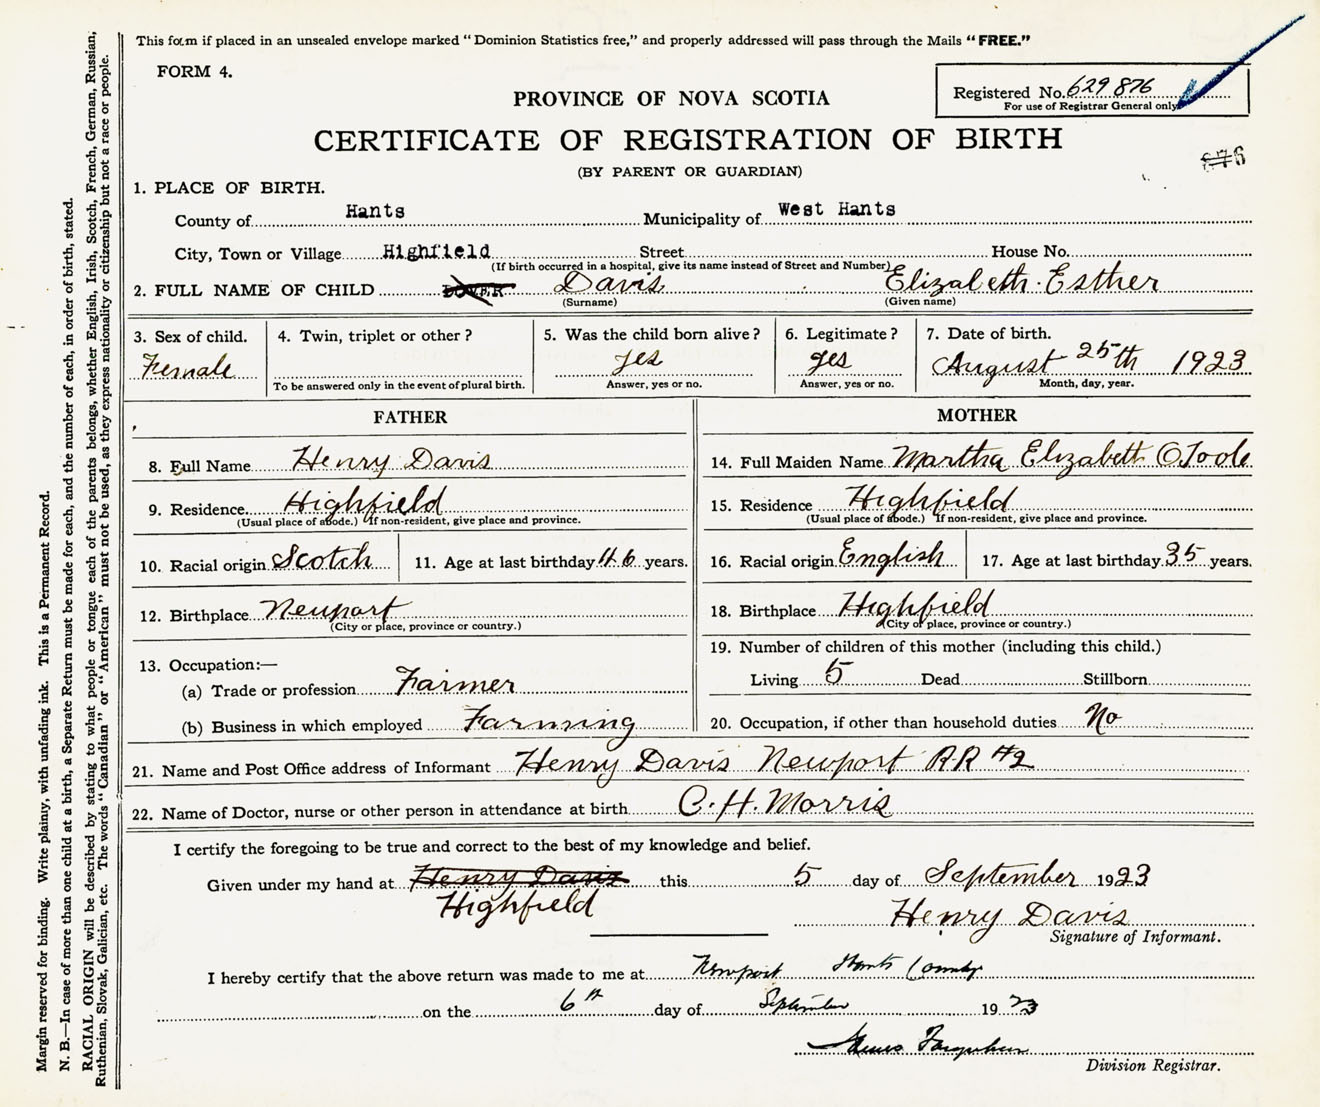 This form if placed in an unsealed envelope marked "Dominion Statistics free," and properly addressed will pass through the Mails "FREE."
FORM 4.
Registered No. 629 876
For use of Registrar General only
PROVINCE OF NOVA SCOTIA
CERTIFICATE OF REGISTRATION OF BIRTH
(BY PARENT OR GUARDIAN)
876
1. PLACE OF BIRTH.
County of Hants Municipality of West Hants
City, Town or Village Highfield Street House No.
(If birth occurred in a hospital, give its name instead of Street and Number)
2. FULL NAME OF CHILD Davis Elizabeth Esther
(Surname) (Given name)
3. Sex of child. 4. Twin, triplet or other? 5. Was the child born alive? 6. Legitimate? 7. Date of birth.
Female yes yes August 25th 1923
To be answered only in the event of plural birth. Answer, yes or no. Answer, yes or no. Month, day, year.
FATHER MOTHER
8. Full Name Henry Davis
14. Full Maiden Name Martha Elizabeth O.Toole
9. Residence. Highfield
(Usual place of abode.) If non-resident, give place and province.
15. Residence Highfield
(Usual place of abode.) If non-resident, give place and province.
10. Racial origin Scotch 11. Age at last birthday 46 years.
16. Racial origin English 17. Age at last birthday 35 years.
12. Birthplace Newport
(City or place, province or country.)
18. Birthplace Highfield
(City or place, province or country.)
13. Occupation:—
(a) Trade or profession Farmer
(b) Business in which employed Farming
19. Number of children of this mother (including this child.)
Living 5 Dead Stillborn
20. Occupation, if other than household duties No
21. Name and Post Office address of Informant Henry Davis Newport R.R #2
22. Name of Doctor, nurse or other person in attendance at birth C. H. Morris
I certify the foregoing to be true and correct to the best of my knowledge and belief.
Given under my hand at Henry Davis this 5 day of September 1923
Highfield Henry Davis
Signature of Informant.
I hereby certify that the above return was made to me at Newport Hants County
on the 6th day of September 1923
Farquhar
Division Registrar.
Margin reserved for binding. Write plainly, with unfading ink. This is a Permanent Record.
N. B.—In case of more than one child at a birth, a Separate Return must be made for each, and the number of each, in order of birth, stated.
RACIAL ORIGIN will be described by stating to what people or tongue each of the parents belongs, whether English, Irish, Scotch, French, German, Russian,
Ruthenian, Slovak, Galician, etc. The words "Canadian" or "American" must not be used, as they express nationality or citizenship but not a race or people.